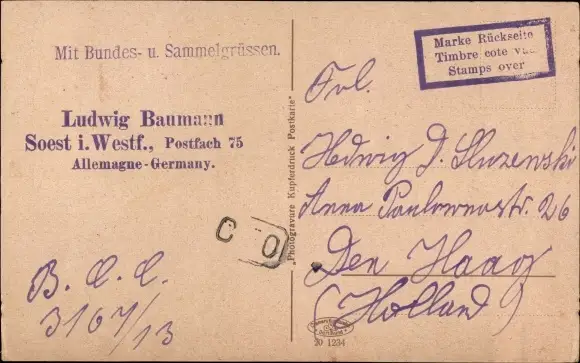 Mit Bundes- u. Sammelgrüssen.
Ludwig Baumann
Soest i. Westf., Postfach 75
Allemagne-Germany.
B. C. C.
3167/13
C O
„Photogravure Kupferdruck Postkarte"
Marke Rückseite
Timbre cote
Stamps over
Frl.
Hedwig D. Sluzewski
Anna Paulownastr. 26
Den Haag
(Holland)
20 1234